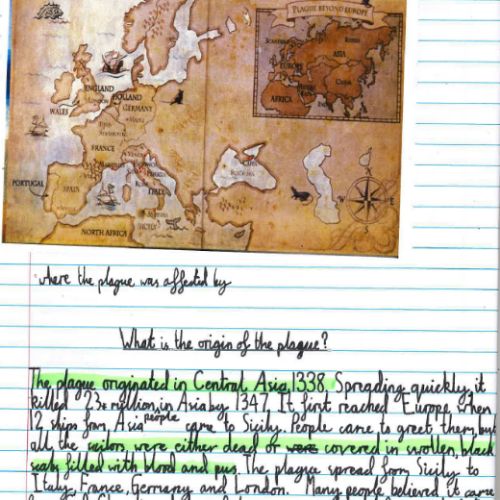 PLAGUE BEYOND EUROPE
ASIA
EUROPE
CHINA
AFRICA
ENGLAND
LONDON
HOLLAND
GERMANY
WALES
FRANCE
PORTUGAL
SPAIN
ITALY
SICILY
NORTH AFRICA
where the plague was affected by
What is the origin of the plague?
The plague originated in Central Asia, 1338. Spreading quickly, it
killed 23+ million, in Asia by 1347. It first reached Europe when
12 ships from Asia people came to Sicily. People came to greet them, but
all the sailors were either dead or were covered in swollen, black
sacks filled with blood and pus. The plague spread from Sicily to
Italy, France, Germany and London. Many people believed it came